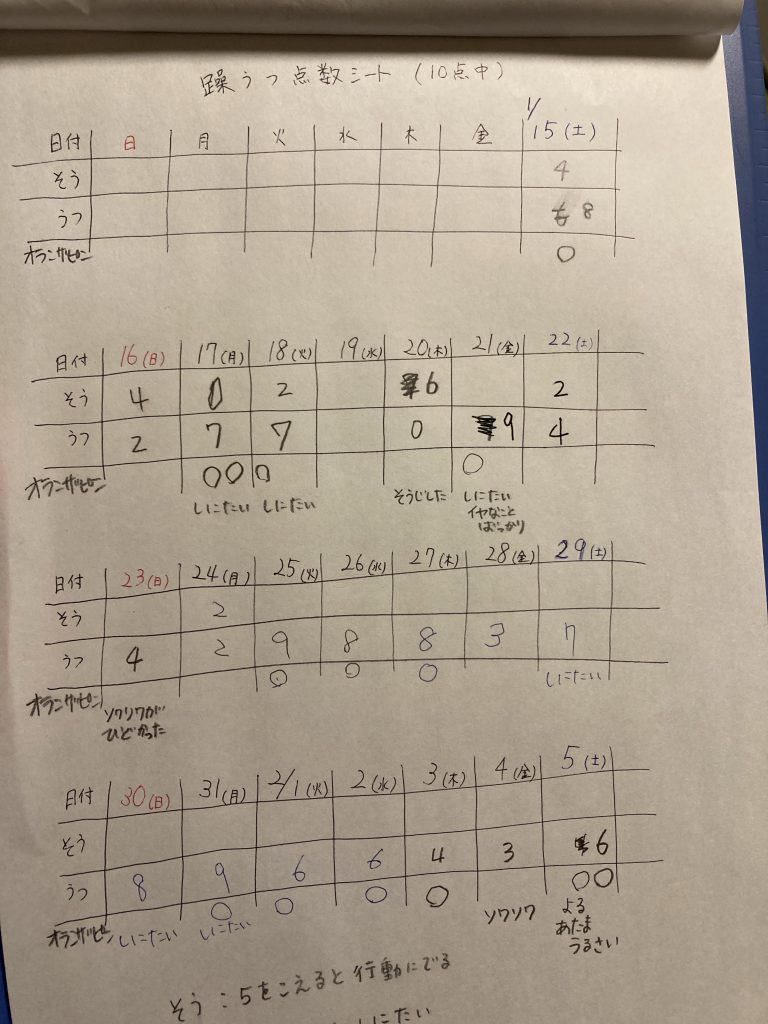 躁うつ点数シート (10点中)
1/
日付 日 月 火 水 木 金 15(土)
そう 4
うつ 8
オランザピン ○
日付 16(日) 17(月) 18(火) 19(水) 20(木) 21(金) 22(土)
そう 4 0 2 6 2
うつ 2 7 7 0 9 4
オランザピン ○○ ○ ○
しにたい しにたい そうじした しにたい
イヤなこと
ばっかり
日付 23(日) 24(月) 25(火) 26(水) 27(木) 28(金) 29(土)
そう 2
うつ 4 2 9 8 8 3 7
オランザピン ○ ○ ○ しにたい
ソワソワが
ひどかった
日付 30(日) 31(月) 2/1(火) 2(水) 3(木) 4(金) 5(土)
そう
うつ 8 9 6 6 4 3 6
オランザピン ○ ○ ○ ○ ○○
しにたい しにたい ソワソワ よる
あたま
うるさい
そう：5をこえると行動にでる
しにたい